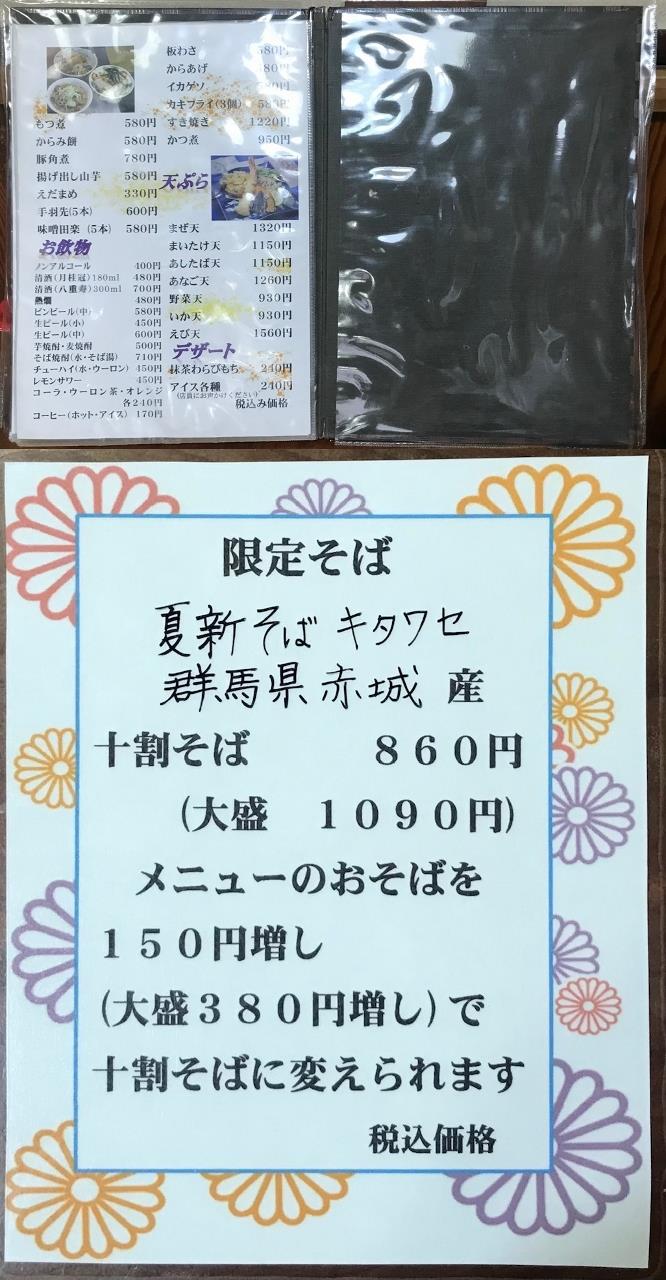 もつ煮 580円
からみ餅 580円
豚角煮 780円
揚げ出し山芋 580円
えだまめ 330円
手羽先(5本) 600円
味噌田楽 (5本) 580円
お飲物
ノンアルコール 400円
清酒(月桂冠)180ml 480円
清酒(八重寿)300ml 700円
熱燗 480円
ビンビール(中) 580円
生ビール(小) 450円
生ビール(中) 600円
芋焼酎・麦焼酎 500円
そば焼酎(水・そば湯) 710円
チューハイ(水・ウーロン) 450円
レモンサワー 450円
コーラ・ウーロン茶・オレンジ
各240円
コーヒー(ホット・アイス) 170円
板わさ 580円
からあげ
イカゲソ
カキフライ(3個) 580円
すき焼き 1220円
かつ煮 950円
天ぷら
まぜ天 1320円
まいたけ天 1150円
あしたば天 1150円
あなご天 1260円
野菜天 930円
いか天 930円
えび天 1560円
デザート
抹茶わらびもち 240円
アイス各種 240円
(店員にお声かけください)
税込み価格
限定そば
夏新そば キタワセ
群馬県 赤城 産
十割そば 860円
(大盛 1090円)
メニューのおそばを
150円増し
(大盛380円増し)で
十割そばに変えられます
税込価格